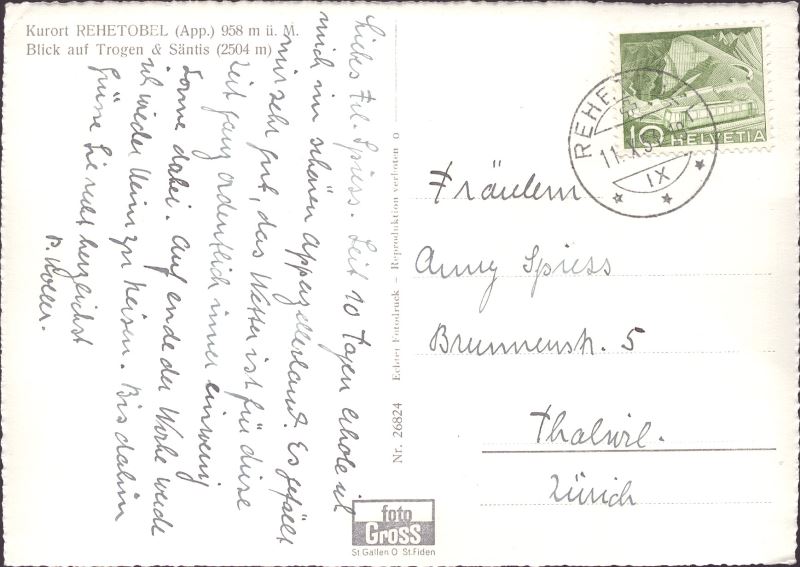 Kurort REHETOBEL (App.) 958 m ü. M.
Blick auf Trogen & Säntis (2504 m)
Liebes Frl. Spiess. Seit 10 Tagen erhole ich
mich im schönen Appenzellerland. Es gefällt
mir sehr gut, das Wetter ist für diese
Zeit ganz ordentlich immer ein wenig
Sonne dabei. Auf ende der Woche werde
ich wieder heimzu reisen. Bis dahin
grüsse Sie recht herzlichst
P. Koller.
Nr. 26824 Echter Fotodruck – Reproduktion verboten
foto
Gross
St Gallen O St.Fiden
REHETOBEL
11. X.
IX
10 HELVETIA
Fräulein
Anny Spiess
Brunnenstr. 5
Thalwil.
Zürich